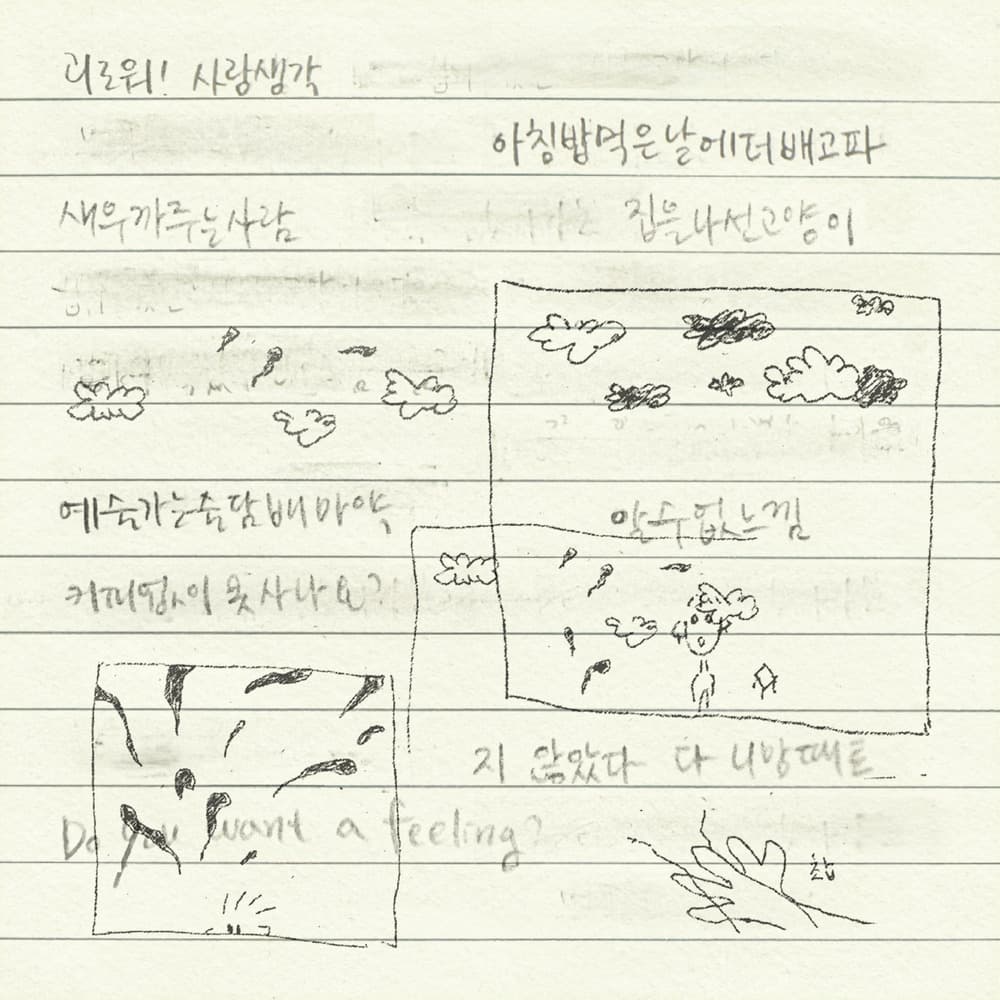 괴로워! 사랑생각
아침밥먹은날에더배고파
새우까주는사람
집을나선고양이
예술가는술담배마약
알수없는느낌
커피없이못사나요?
지 않았다 다 니맘때로
Do you want a feeling?
찹